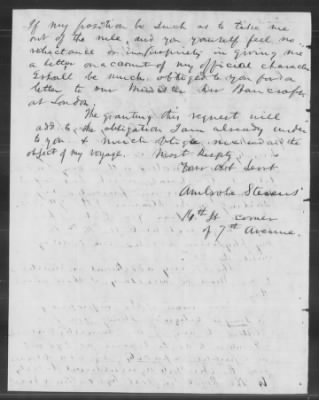 If my position be such as to take me
out of the rule, and you yourself feel no
reluctance or impropriety in giving me
a letter on account of my official character
I shall be much obliged to you for a
letter to our Minister Mr Bancroft
at London.
The granting this request will
add to the obligation I am already under
to you & much oblige me in and aid the
object of my voyage. Most Respty
Your Obt Servt
Ambrose Stevens
16th St corner
of 7th Avenue.